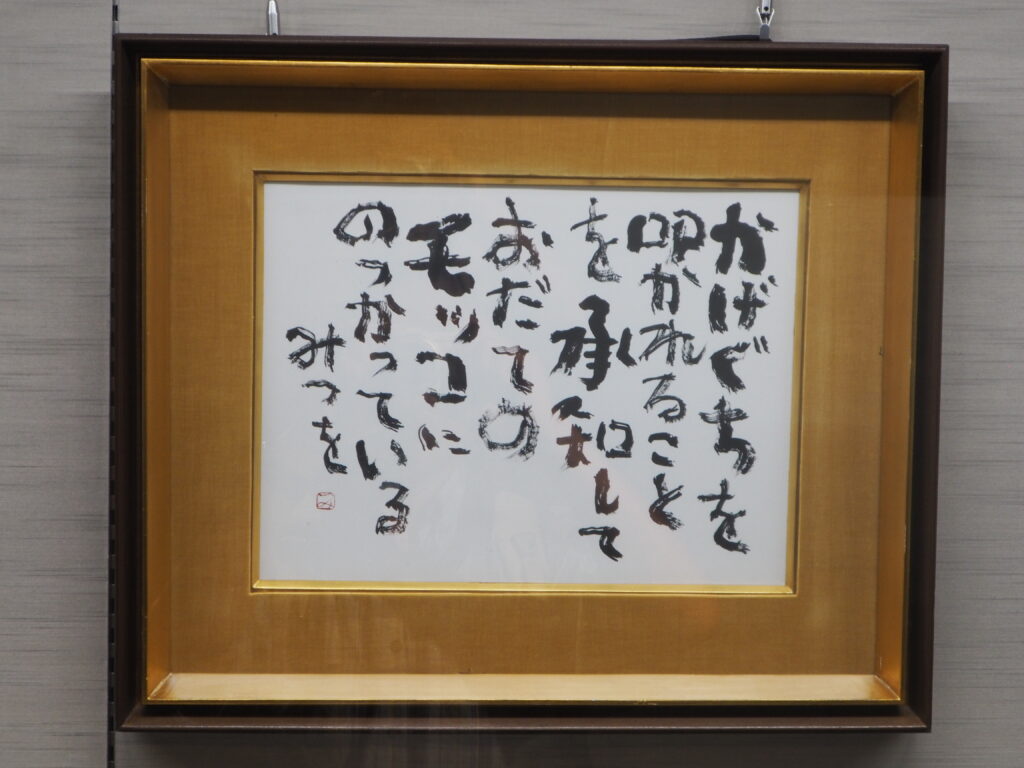 かげぐちを
叩かれること
を承知して
おだての
モッコに
のっかっている
みつを